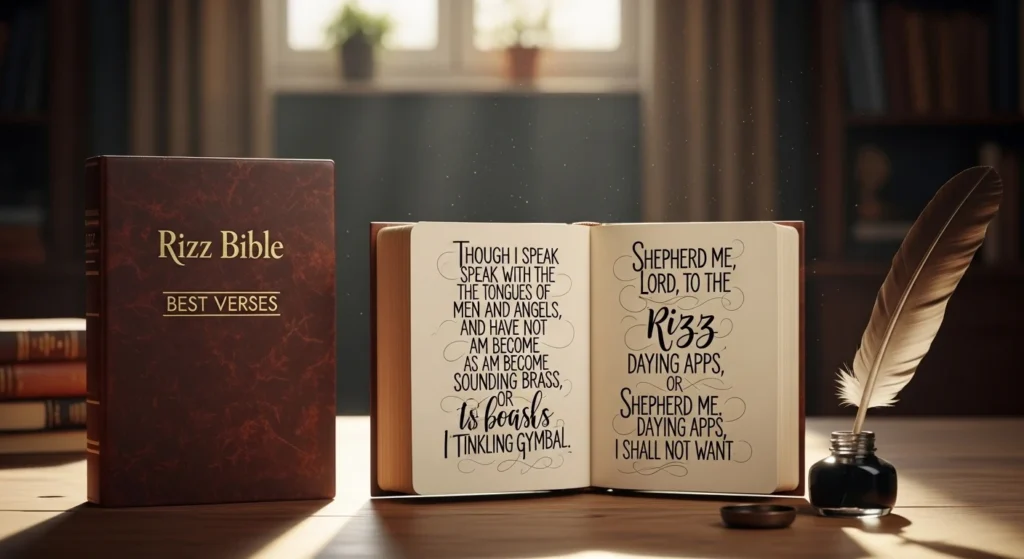 Rizz Bible
BEST VERSES
THOUGH I SPEAK
SPEAK WITH THE
THE TONGUES OF
MEN AND ANGELS,
AND HAVE NOT
AM BECOME
AS AM BECOME
SOUNDING BRASS,
OR
ts boasks
I TINKLING GYMBAL.
SHEPHERD ME,
LORD, TO THE
Rizz
DAYING APPS,
OR
SHEPHERD ME.
DAYING APPS,
I SHALL NOT WANT